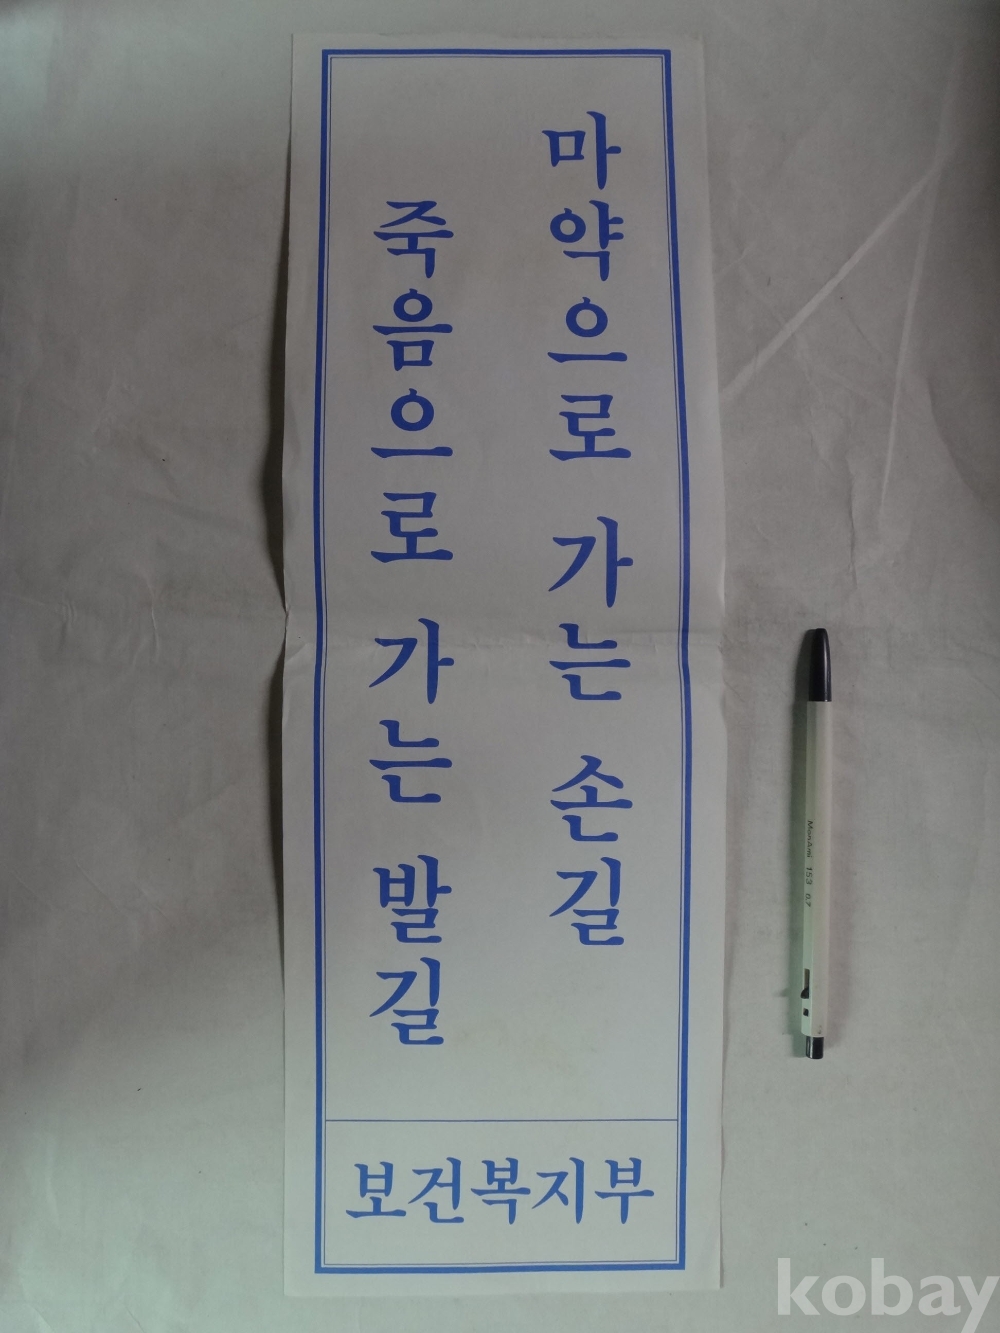 마약으로 가는 손길
죽음으로 가는 발길
보건복지부
MonAmi 153 0.7
kobay